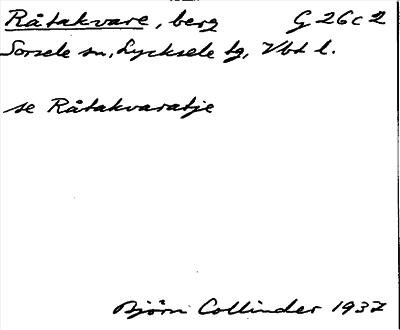 Råtakvare, berg G 26c2
Sorsele sn, Lycksele tg, Vbt l.
se Råtakvaratje
Björn Collinder 1937